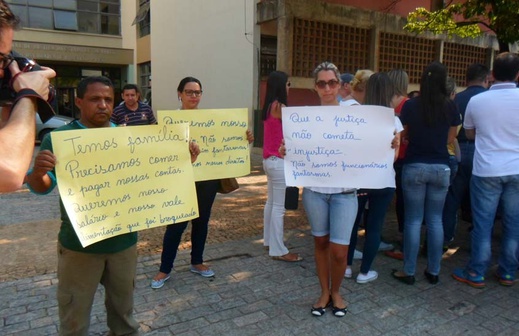 Temos família
Precisamos comer
e pagar nossas contas.
Queremos nosso
salário e nosso vale
alimentação que foi bloqueado
Queremos nosso
Não somos
Que a justiça
não cometa
injustiça=
Não somos funcionários
fantasmas